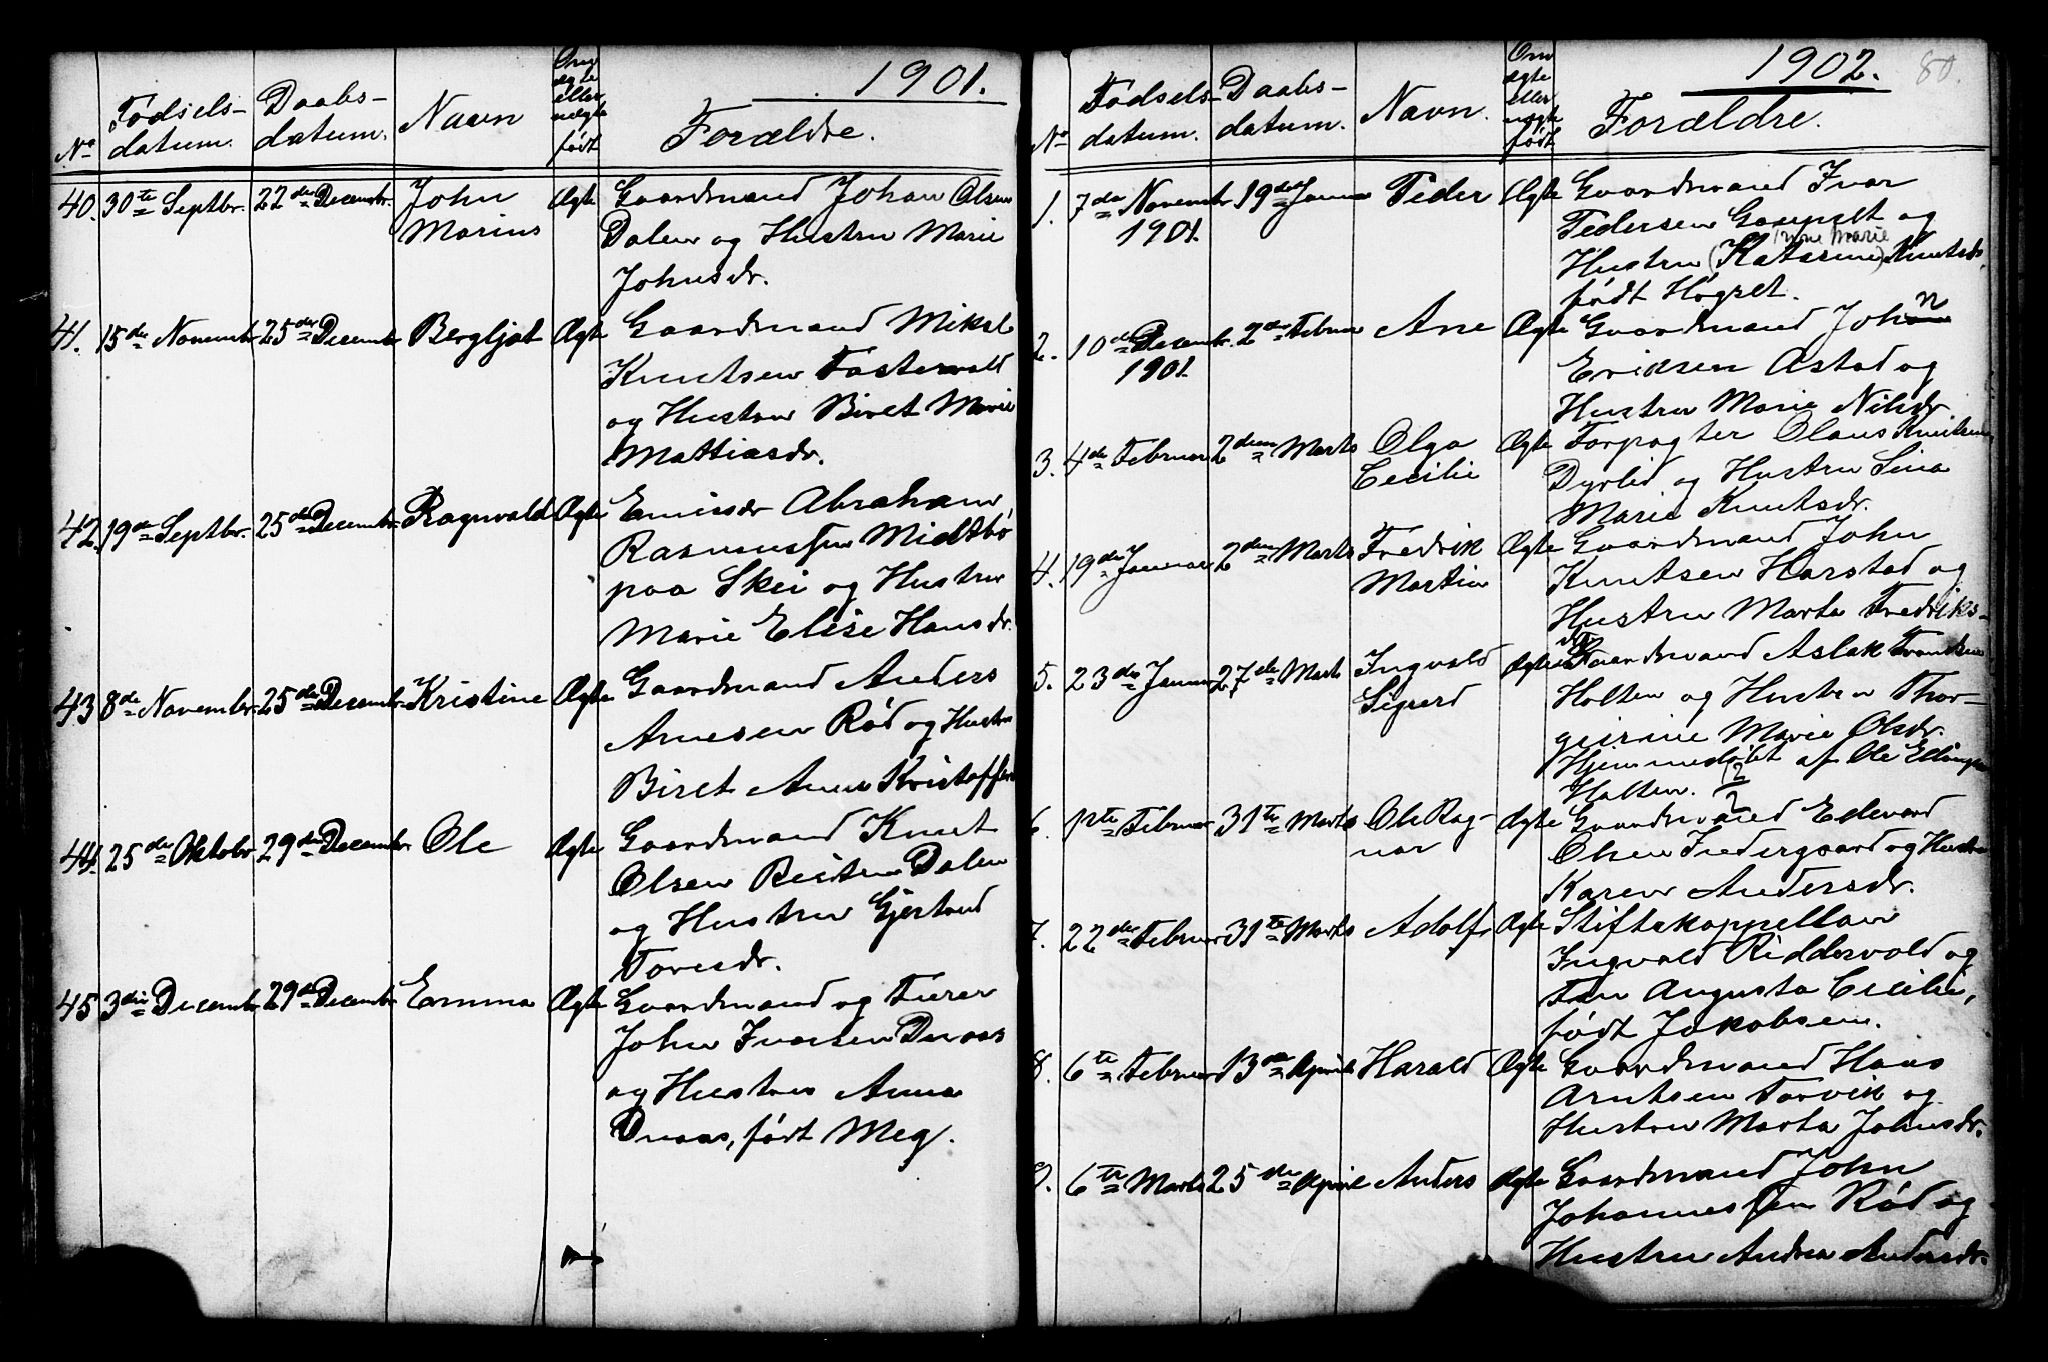 1901.
No
Fødselsdatum.
Daabsdatum.
Navn
Om ægte eller uægte født
Forældre.
40. 30te Septbr. 22de Decembr. John Marius Ægte Gaardmand Johan Olsen
Dalen og Hustru Marie
Johnsdr.
41. 15de Novembr 25de Decembr Bergljot Ægte Gaardmand Mikal
Knutsen Fostervold
og Hustru Biret Marie
Mattiasdr.
42. 19de Septbr. 25de Decembr. Ragnvald Ægte Emissær Abraham
Rasmussen Midtbø
paa Skei og Hustru
Marie Elise Hansdr.
43 8de Novembr. 25de Decembr. Kristine Ægte Gaardmand Anders
Arnesen Rød og Hustru
Biret Anne
44. 25de Oktobr 29de Decembr. Ole Ægte Gaardmand Knut
Olsen Reiten Dalen
og Hustru Gjertrud
Toresdr.
45 3die Decembr 29de Decembr Emma Ægte Gaardmand og Furer
John Iversen Duaas
og Hustru Anna
Duaas, født Meg.
1902. 80.
No
Fødselsdatum.
Daabsdatum.
Navn.
Om ægte eller uægte født
Forældre.
1. 7de Novembr 1901. 19de Januar Peder Ægte Gaardmand Ivar
Pedersen Gaupset og
Anne Marie
Hustru (Katarine) Knutsdr,
født Høgset.
2. 10de Decembr. 1901. 2den Februar Ane Ægte Gaardmand John
Eriksen Astad og
Hustru Marie Nilsdr.
3. 4de Februar 2den Marts Olga Cecilie Ægte Forpagter Olaus Knutsen
Dyrlid og Hustru Lina
Marie Knutsdr.
4. 19de Januar 2den Marts Fredrik Martin Ægte Gaardmand John
Knutsen Harstad og
Hustru Marta Fredriks-
dr.
5. 23de Januar 27de Marts Ingvald Sigurd Ægte Gaardmand Aslak
Holten og Hustru Thor-
geirine Marie Olsdr.
Hjemmedøbt af Ole
Holten. 12/2
6. 12te Februar 31te Marts Ole Rag-
nar Ægte Gaardmand Edevard
Olsen Fredergaard og Hustru
Karen Andersdr.
7. 22de Februar 31te Marts Adolf Ægte Stiftskappellan
Ingvald Riddervold og
Fru Augusta Cecilie,
født Jakobsen.
8. 6te Februar 13de April Harald Ægte Gaardmand Hans
Arntsen Torvik og
Hustru Marta Johnsdr.
9. 6te Marts 25de April Anders Ægte Gaardmand John
Johannessen Rød og
Hustru Andrea Andersdr.